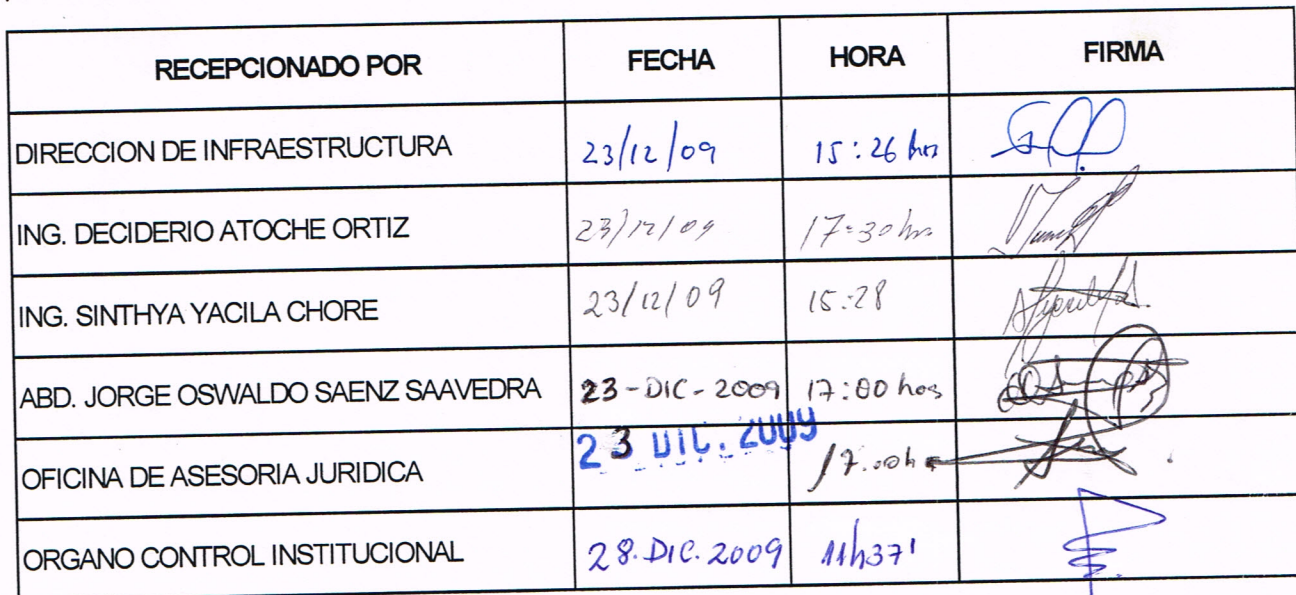 RECEPCIONADO POR FECHA HORA FIRMA
DIRECCION DE INFRAESTRUCTURA 23/12/09 15:26 hrs
ING. DECIDERIO ATOCHE ORTIZ 23/12/09 17:30 hrs
ING. SINTHYA YACILA CHORE 23/12/09 15:28
ABD. JORGE OSWALDO SAENZ SAAVEDRA 23-DIC-2009 17:00 hos
OFICINA DE ASESORIA JURIDICA 23 DIC. 2009 17:00h
ORGANO CONTROL INSTITUCIONAL 28.DIC.2009 11h37'